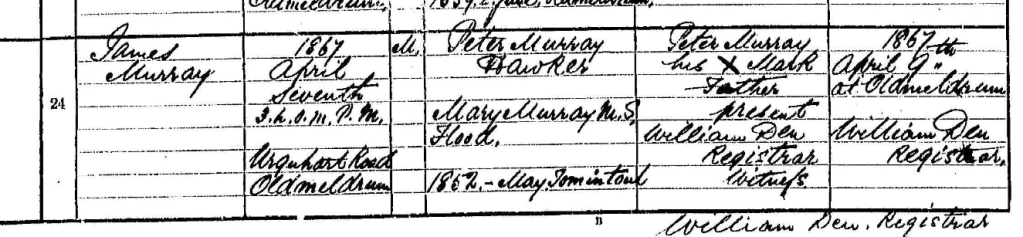 Oldmeldrum, 1859. June, Oldmeldrum.
24
James
Murray
1867
April
Seventh
3.h.0.m. P.M.
Urquhart Road
Oldmeldrum
M.
Peter Murray
Hawker
Mary Murray M.S.
Flood.
1862.-May, Tomintoul
Peter Murray
his X Mark
Father
present
William Den
Registrar
Witness
1867
April 9th
at Oldmeldrum
William Den
Registrar.
B
William Den. Registrar